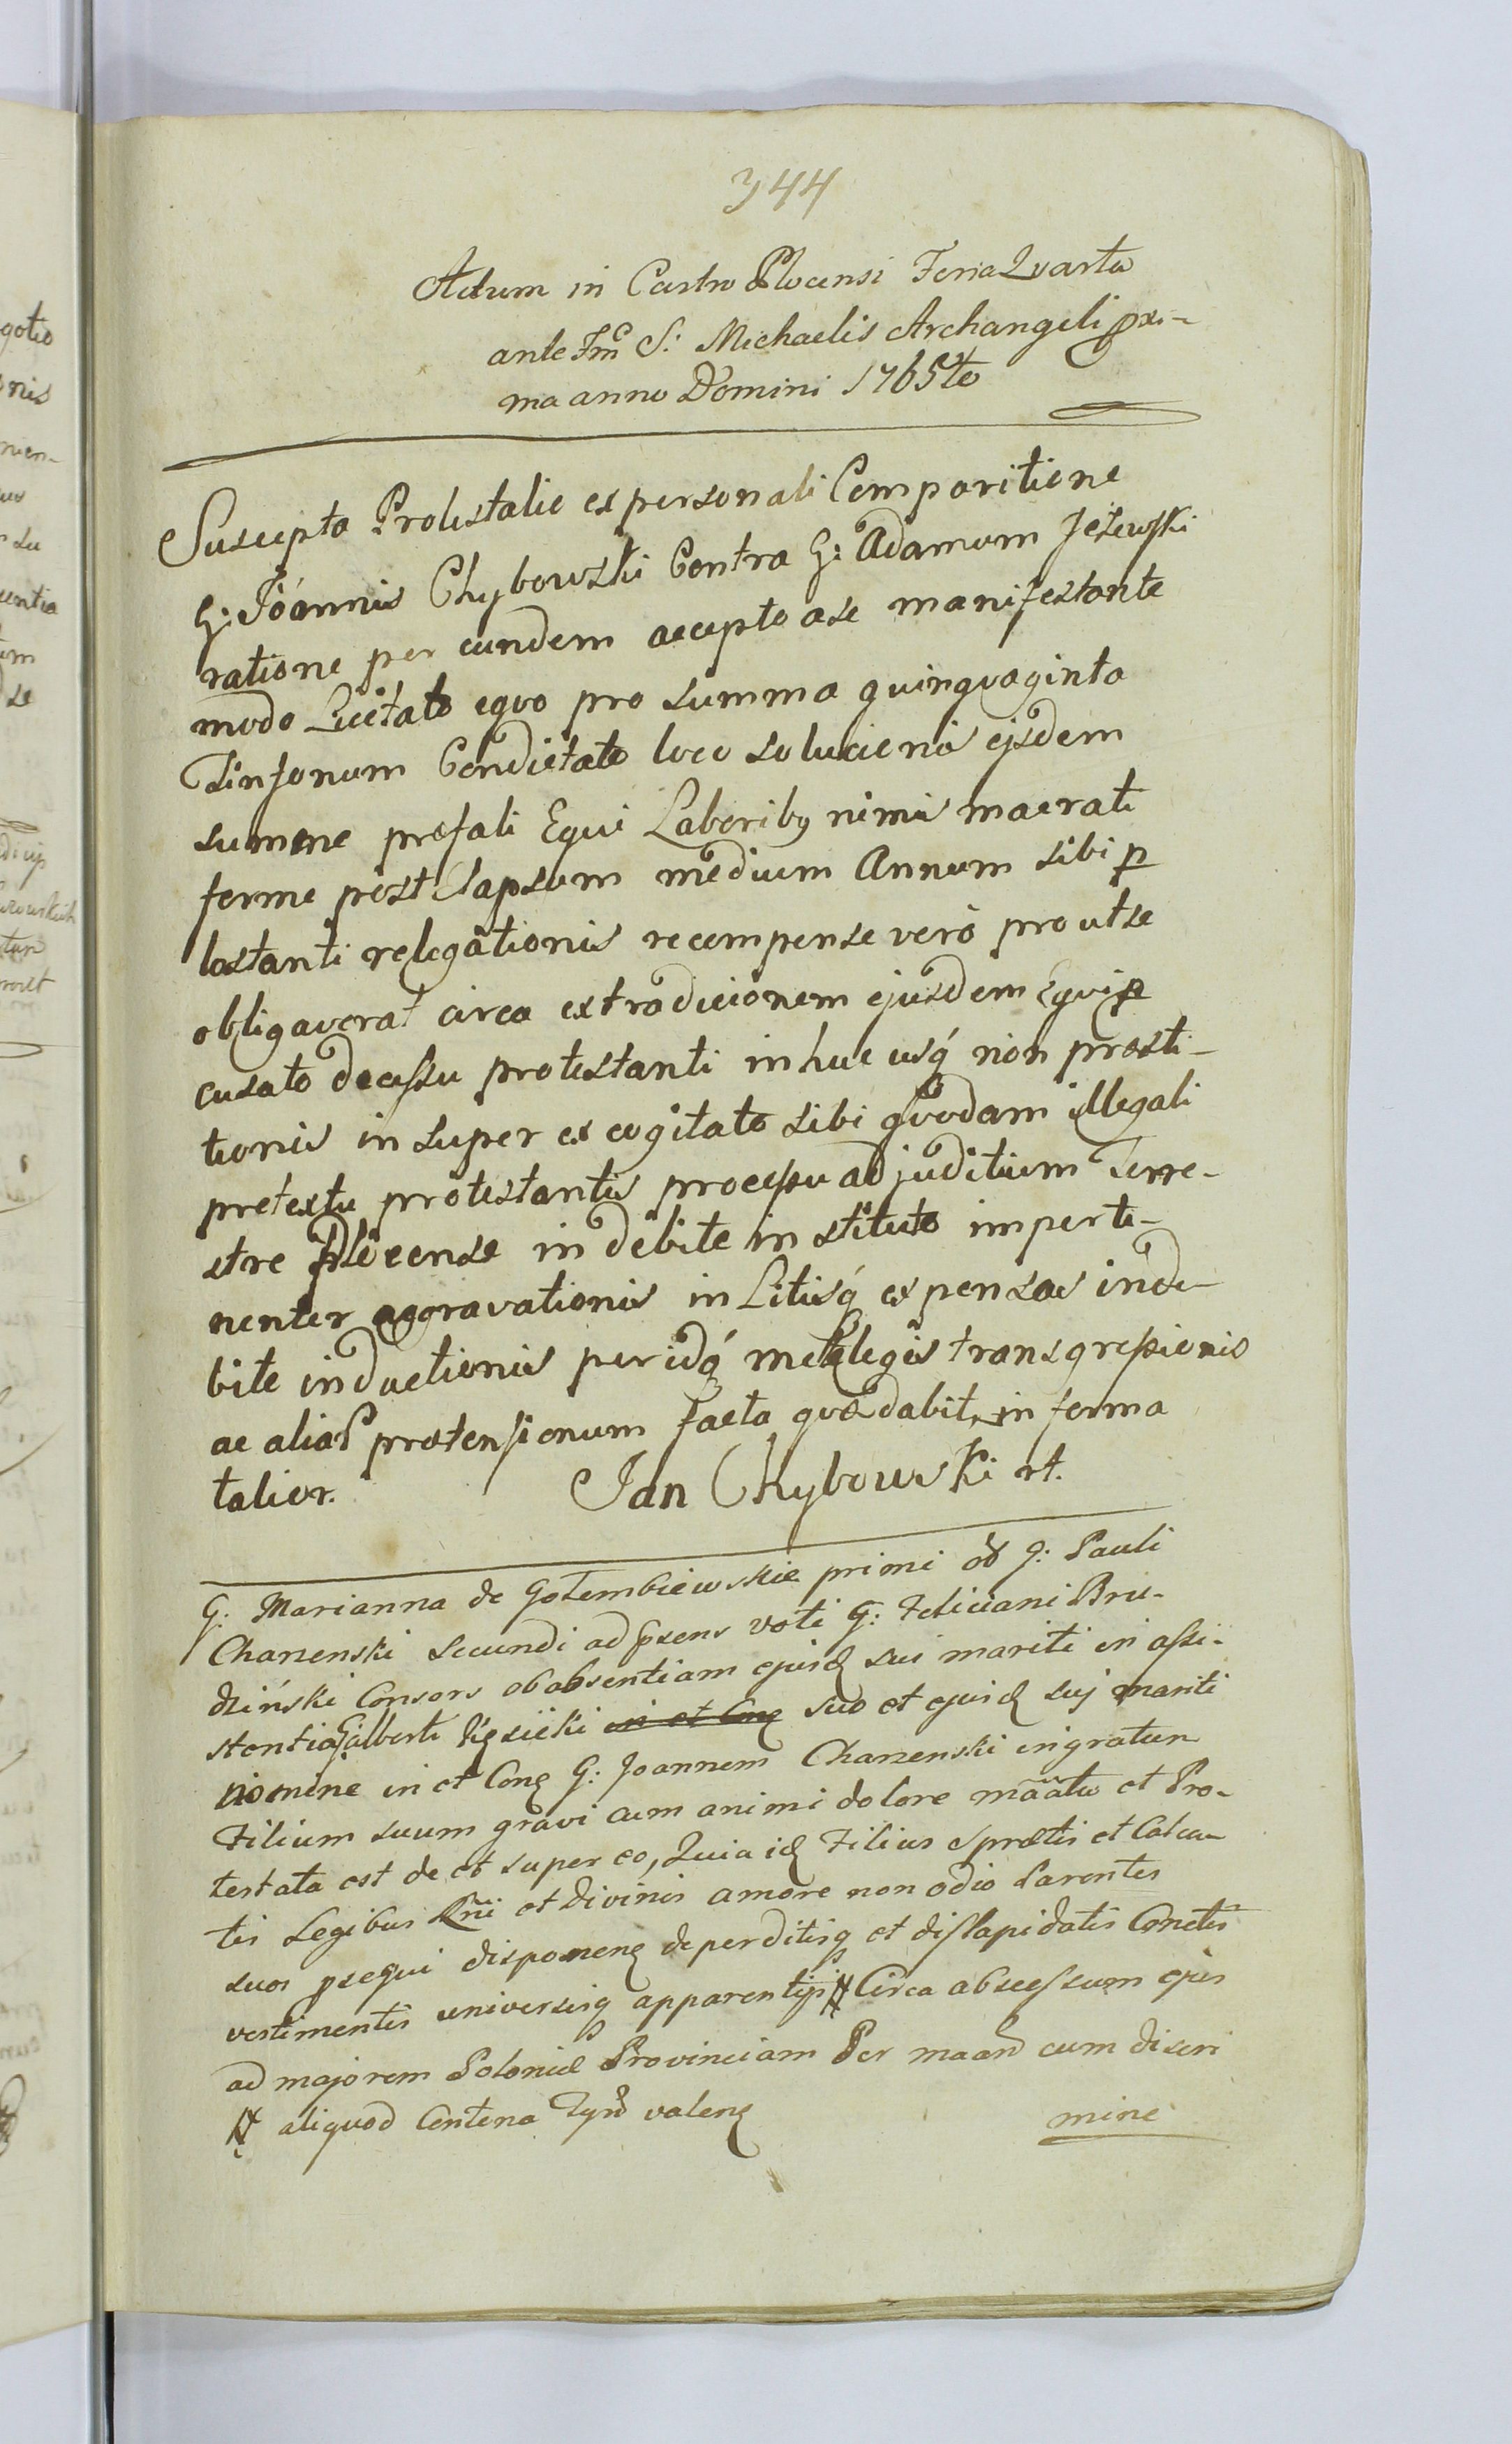 344
Actum in Castro Plocensi Feria Qvarta
ante Fm̃ S: Michaelis Archangeli pxi-
ma anno Domini 1765to
Suscepta Protestatio ex personali Comparitione
G: Joannis Chybowski Contra G: Adamum Jeżewski
ratione per eundem accepto a se manifestante
modo Licitato eqvo pro summa qvinqvaginta
Tinfonum Condictato loco solucionis ejsdem
summe prefati Eqvi Laboriby nimis macrati
ferme post Elapsum medium Annum sibi p
lastanti relegationis recompense vero pro ut se
obligaverat circa extradicionem ejusdem Eqvi p
cusato decessu protestanti in huc usq́ non presti-
tionis in super ex cogitato sibi qvodam illegali
pretextu protestantis processu ad juditium Terre-
stre Plocense in debite in stituto imperti-
nenter aggravationis in Litisq́ expensas inde-
bite inductionis per idq́ metlegis transgressionis
ac aliar pretensionum facta qvæ dabit in forma
talior. Jan Chybowski rt.
G: Marianna de Gołembiewskie primi ob G: Pauli
Charzenski Secundi ad psens voti G: Feliciani Bru-
dziński Consors ob absentiam ejusd sui mariti in assi-
stentia G Alberti Kęsicki in et Cong suo et ejusd suj mariti
nomine in et Cong G: Joannem Charzenski ingratum
Filium suum gravi cum animi dolore mããta et Pro-
testata est de et super eo, Quia id Filius Spretis et Calca-
tis Legibus Rni et Divinis amore non odio Parentes
suos pseqvi disponeng deperditisq et dissapidatis Conctis
vestimentis universisq apparentijs # Circa abscessum ejus
ad majorem Poloniæ Provinciam Per maan cum discri
# aliqvod Centena Tynf valeng mine